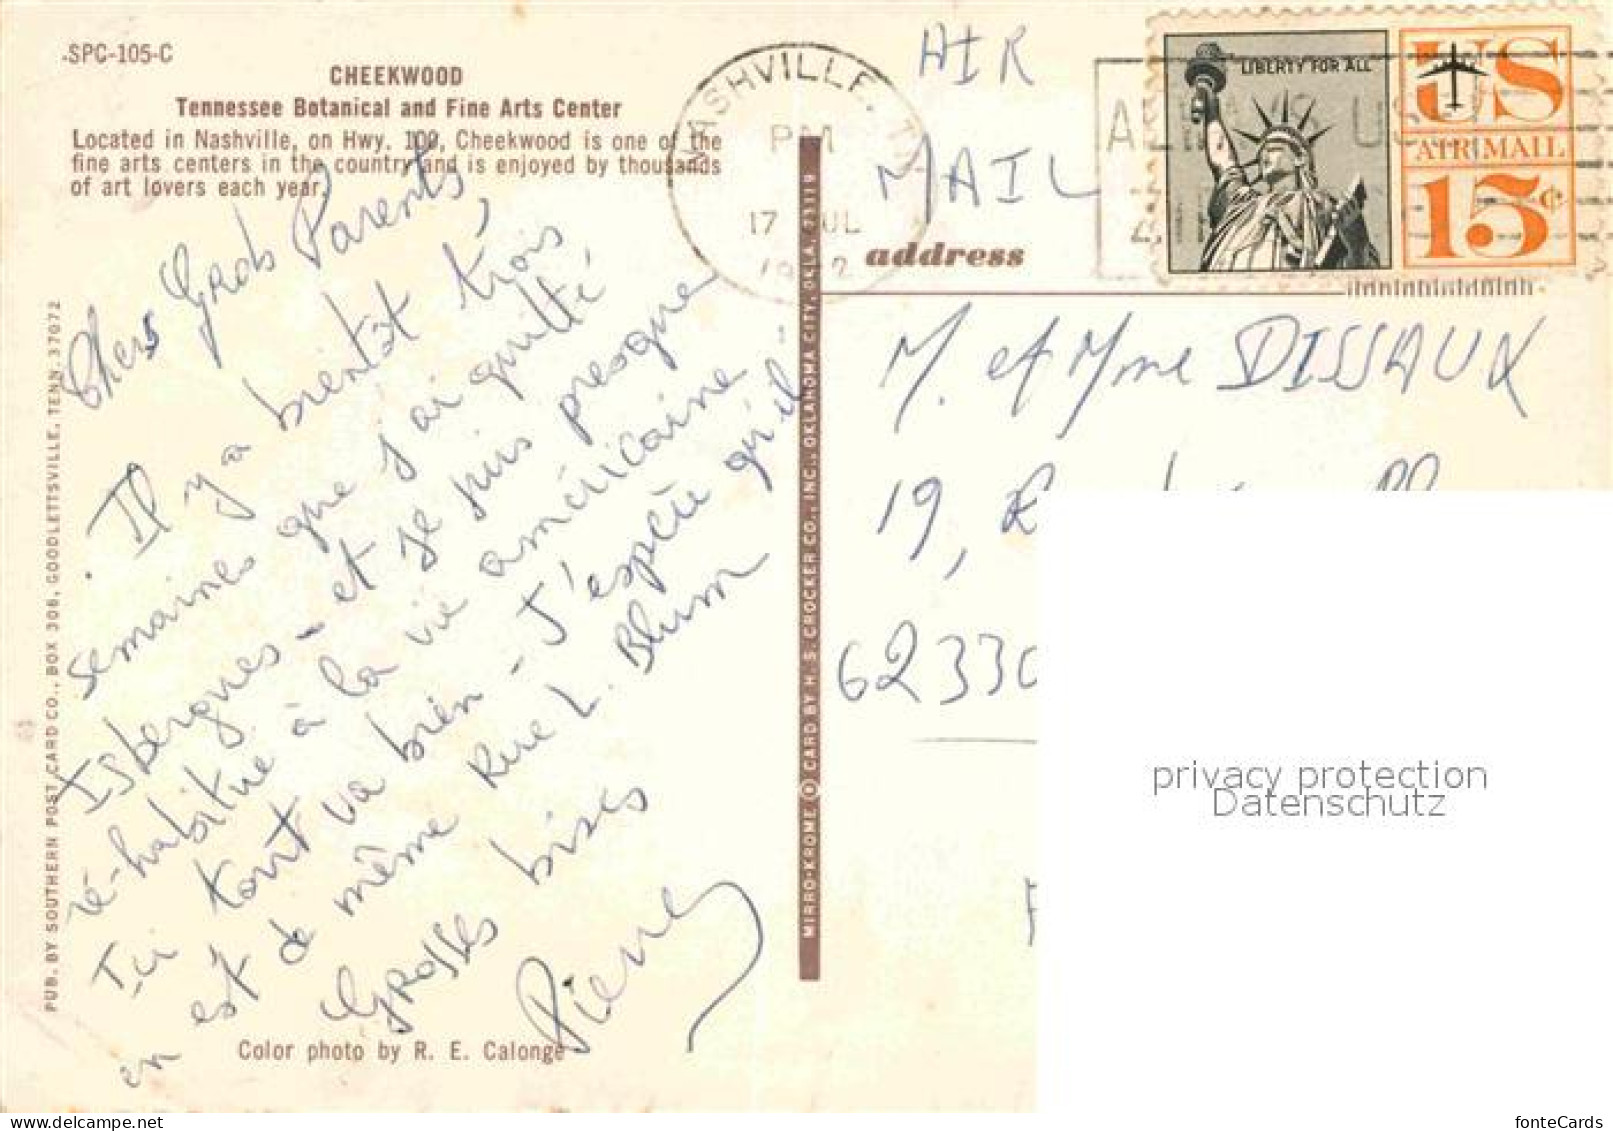 SPC-105-C
CHEEKWOOD
Tennessee Botanical and Fine Arts Center
Located in Nashville, on Hwy. 100, Cheekwood is one of the
fine arts centers in the country and is enjoyed by thousands
of art lovers each year.
Chers Grds Parents,
Il y a bientôt trois
semaines que j'ai quitté
Isbergues - et je suis presque
ré-habitué à la vie américaine -
Ici tout va bien - J'espère qu'il
en est de même Rue L. Blum
Grosses bises
Pierre
Color photo by R. E. Calonge
PUB. BY SOUTHERN POST CARD CO., BOX 306, GOODLETTSVILLE, TENN. 37072
MIRRO-KROME ® CARD BY H. S. CROCKER CO., INC., OKLAHOMA CITY, OKLA. 73119
NASHVILLE, TN
PM
17 JUL
AIR
MAIL
LIBERTY FOR ALL
US
AIR MAIL
15c
address
M. et Mme DISSAUX
19,
62330
privacy protection
Datenschutz
fonteCards